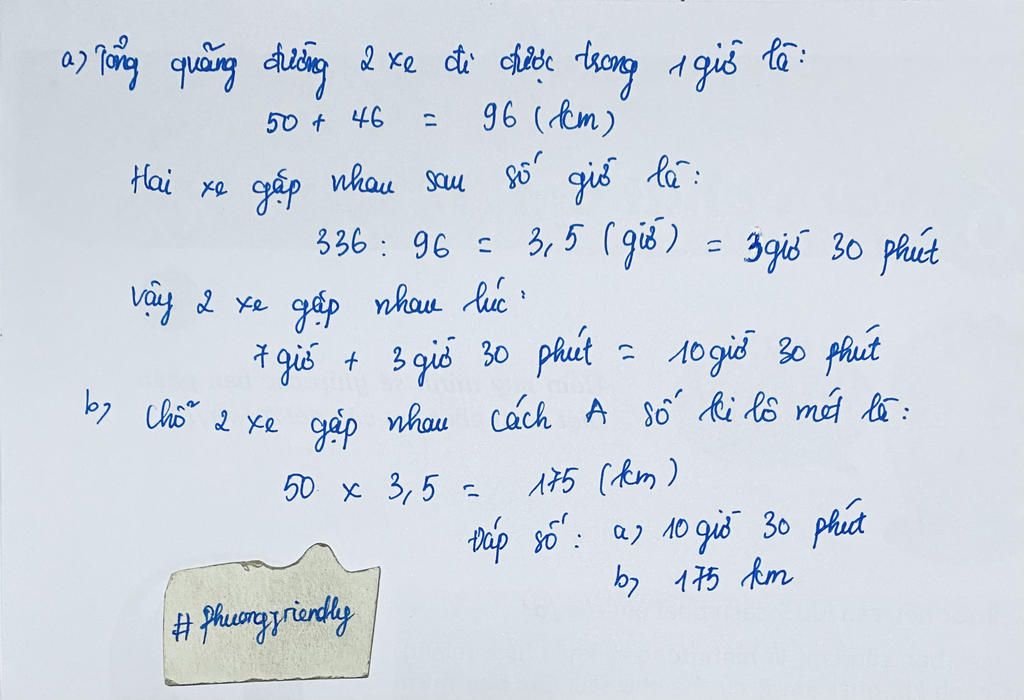 a) Tổng quãng đường 2 xe đi được trong 1 giờ là:
50 + 46 = 96 (km)
Hai xe gặp nhau sau số giờ là:
336 : 96 = 3,5 (giờ) = 3 giờ 30 phút
Vậy 2 xe gặp nhau lúc:
7 giờ + 3 giờ 30 phút = 10 giờ 30 phút
b) Chỗ 2 xe gặp nhau cách A số ki lô mét là:
50 x 3,5 = 175 (km)
Đáp số: a) 10 giờ 30 phút
b) 175 km
# phuongfriendly